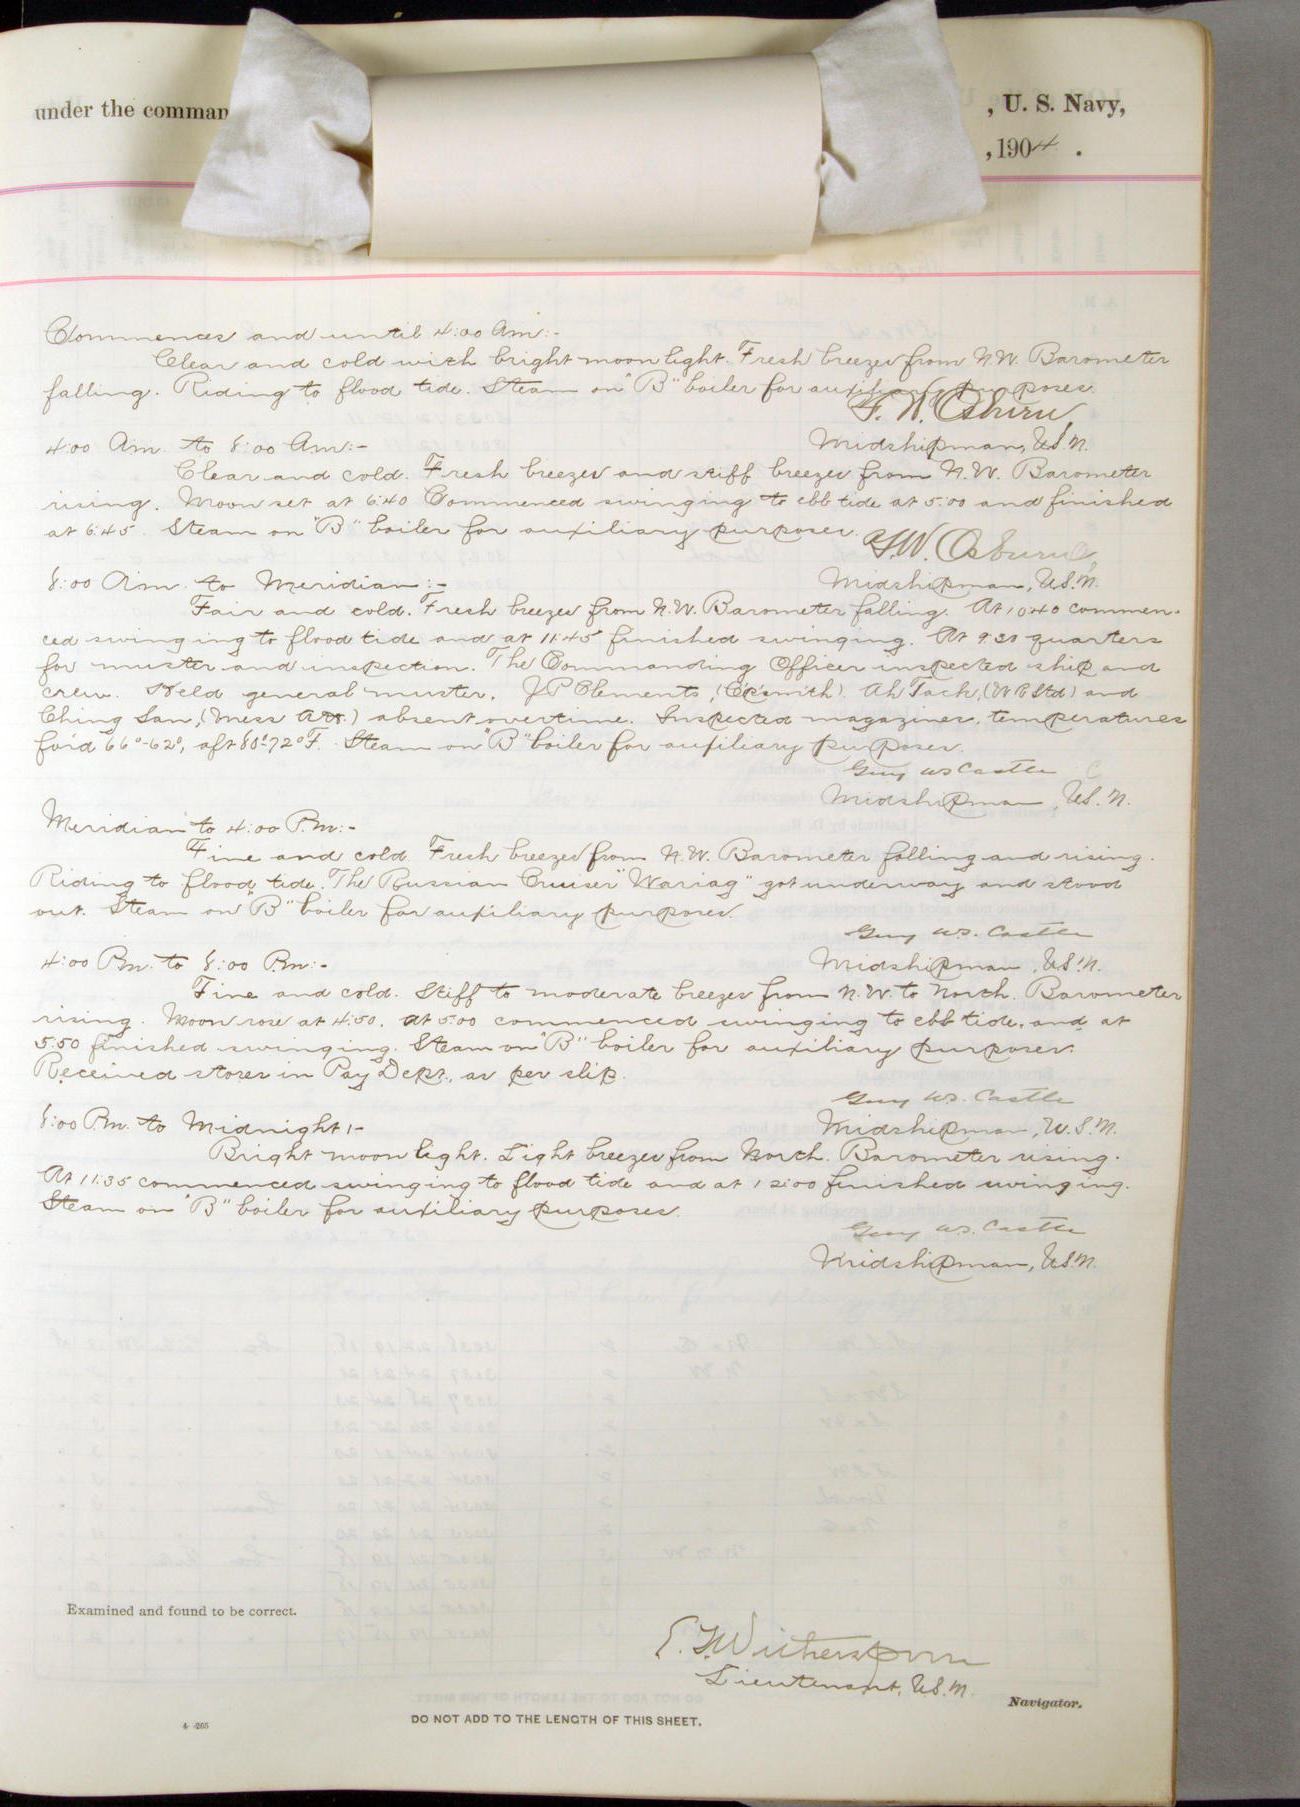 under the comman
, U. S. Navy,
, 1904 .
Commences and until 4:00 Am:-
Clear and cold with bright moonlight. Fresh breezes from N.W. Barometer
falling. Riding to flood tide. Steam on "B" boiler for auxiliary purposes.
F. W. Osburn
Midshipman, U.S.N.
4:00 Am. to 8:00 Am:-
Clear and cold. Fresh breezes and stiff breezes from N.W. Barometer
rising. Moon set at 6:40 Commenced swinging to ebb tide at 5:00 and finished
at 6:45. Steam on "B" boiler for auxiliary purposes.
F.W. Osburn,
Midshipman, U.S.N.
8:00 Am. to Meridian:-
Fair and cold. Fresh breezes from N.W. Barometer falling. At 10:40 commen-
ced swinging to flood tide and at 11:45 finished swinging. At 9:30 quarters
for muster and inspection. The Commanding Officer inspected ship and
crew. Held general muster. J P Clements, Ah (W R Std) and
Ching San, (Mess Att.) absent overtime. Inspected magazines, temperatures
for'd 66°-62°, aft 80°-72° F. Steam on "B" boiler for auxiliary purposes.
Guy W S Castle
Midshipman, U.S.N.
Meridian to 4:00 P.m:-
Fine and cold. Fresh breezes from N.W. Barometer falling and rising.
Riding to flood tide. The Russian Cruiser "Wariag" got underway and stood
out. Steam on "B" boiler for auxiliary purposes.
Guy W.S. Castle
Midshipman, U.S.N.
4:00 Pm. to 8:00 P.m:-
Fine and cold. Stiff to moderate breezes from N.W. to North. Barometer
rising. Moon rose at 4:50. At 5:00 commenced swinging to ebb tide, and at
5:50 finished swinging. Steam on "B" boiler for auxiliary purposes.
Received stores in Pay Dept., as per slip.
Guy W.S. Castle
Midshipman, U.S.N.
8:00 P.m. to Midnight:-
Bright moonlight. Light breezes from North. Barometer rising.
At 11:35 commenced swinging to flood tide and at 12:00 finished swinging.
Steam on "B" boiler for auxiliary purposes.
Guy W.S. Castle
Midshipman, U.S.N.
Examined and found to be correct.
E. T. Witherspoon
Lieutenant, U.S.N.
Navigator.
DO NOT ADD TO THE LENGTH OF THIS SHEET.